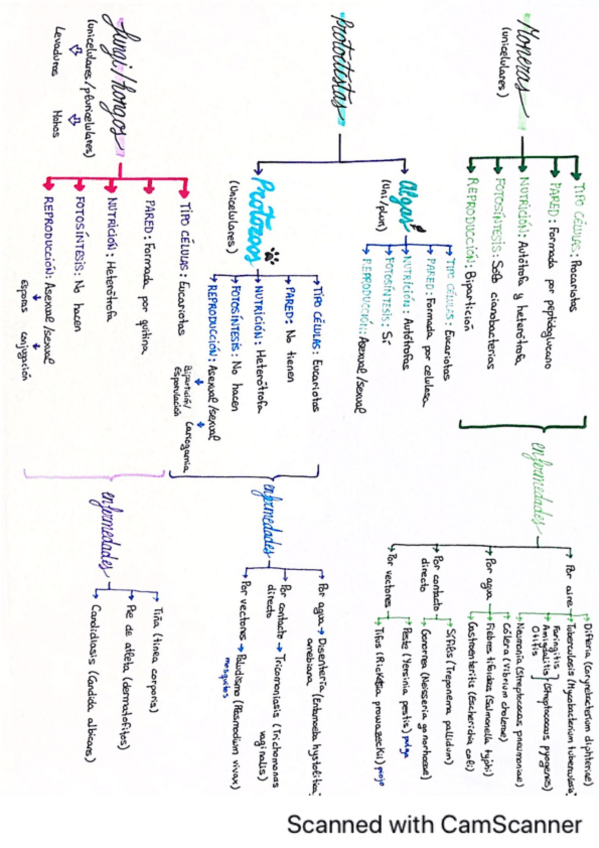 Moneras
(unicelulares)
TIPO CÉLULAS: Procariotas
PARED: Formada por peptidoglucano
NUTRICIÓN: Autótrofa y heterótrofa
FOTOSÍNTESIS: Solo cianobacterias
REPRODUCCIÓN: Bipartición
enfermedades
Por aire
Difteria (Corynebacterium diphteriae)
Tuberculosis (Mycobacterium tuberculosis)
Faringitis
Amigdalitis (Streptococcus pyogenes)
Otitis
Neumonía (Streptococcus pneumoniae)
Por agua
Cólera (Vibrium cholerae)
Fiebres tifoideas (Salmonella typhi)
Gastroenteritis (Escherichia coli)
Por contacto directo
Sífilis (Treponema pallidum)
Gonorrea (Neisseria gonorrhoeae)
Por vectores
Peste (Yersinia pestis) pulga
Tifus (Ricketsia prowazeckii) piojo
Protoctistas
Algas
(Uni/pluri)
TIPO CÉLULAS: Eucariotas
PARED: Formada por celulosa
NUTRICIÓN: Autótrofas
FOTOSÍNTESIS: Sí
REPRODUCCIÓN: Asexual/sexual
Protozoos
(Unicelulares)
TIPO CÉLULAS: Eucariotas
PARED: No tienen
NUTRICIÓN: Heterótrofa
FOTOSÍNTESIS: No hacen
REPRODUCCIÓN: Asexual/sexual
Bipartición/ Cariogamia
Esporulación
enfermedades
Por agua → Disentería (Entamoeba hystolitica)
amebiana
Por contacto → Tricomoniasis (Trichomonas
directo vaginalis)
Por vectores → Paludismo (Plasmodium vivax)
mosquitos
Fungi/hongos
(unicelulares/pluricelulares)
Levaduras Mohos
TIPO CÉLULAS: Eucariotas
PARED: Formada por quitina
NUTRICIÓN: Heterótrofa
FOTOSÍNTESIS: No hacen
REPRODUCCIÓN: Asexual/sexual
esporas conjugación
enfermedades
Tiña (tinea corporis)
Pie de atleta (dermatofitos)
Candidiasis (Candida albicans)
Scanned with CamScanner